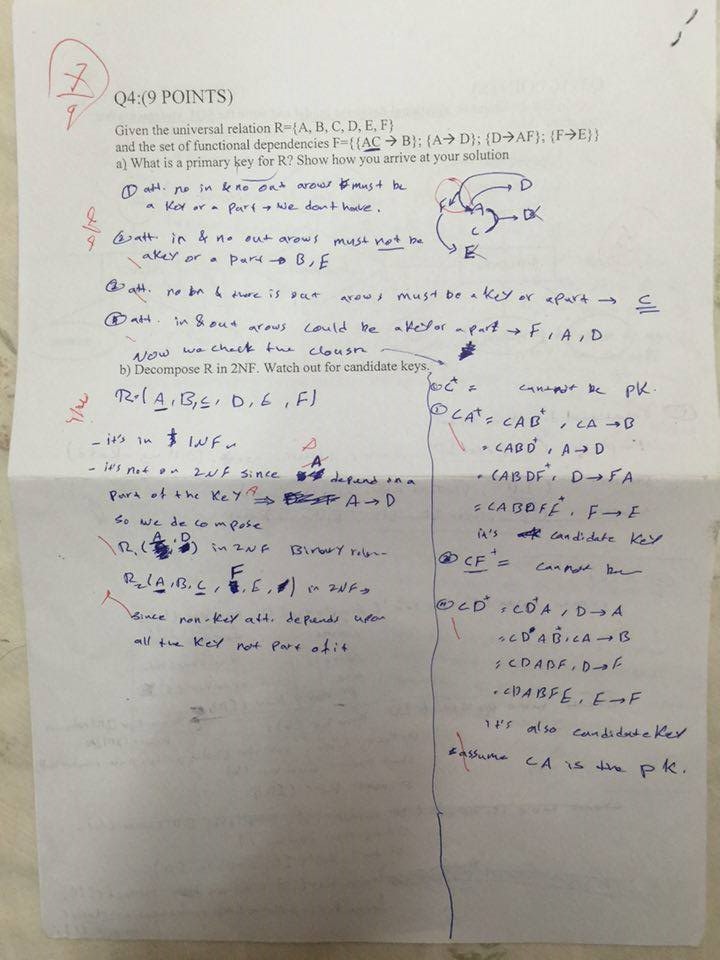 7
9
Q4:(9 POINTS)
Given the universal relation R={A, B, C, D, E, F}
and the set of functional dependencies F={{AC → B}; {A→ D}; {D→AF}; {F→E}}
a) What is a primary key for R? Show how you arrive at your solution
① att. no in & no out arows must be
a key or a part → we dont have.
D
A
B
C
F
E
② att. in & no out arows must not be
a key or a part → B, E
att. no in & there is out arows must be a key or apart → C
att. in & out arows could be a key or a part → F, A, D
Now we check the
b) Decompose R in 2NF. Watch out for candidate keys.
R.( A, B, C, D, E, F)
- it's in 1NF
- it's not on 2NF since A depend on a
part of the key ⇒ A → D
so we decompose
R1(A, D) in 2NF Binary
R2(A, B, C, F, E, ) in 2NF →
since non-key att. depends upon
all the key not part of it
C+ = cannot be pk.
CA+ = CAB+, CA → B
= CABD+, A → D
= CABDF+, D → FA
= CABDFE+, F → E
it's candidate key
CF+ = cannot be
CD+ = CD+A, D → A
= CD+AB, CA → B
= CDABF, D → F
= CDABFE, E → F
it's also candidate key
* assume CA is the pk.